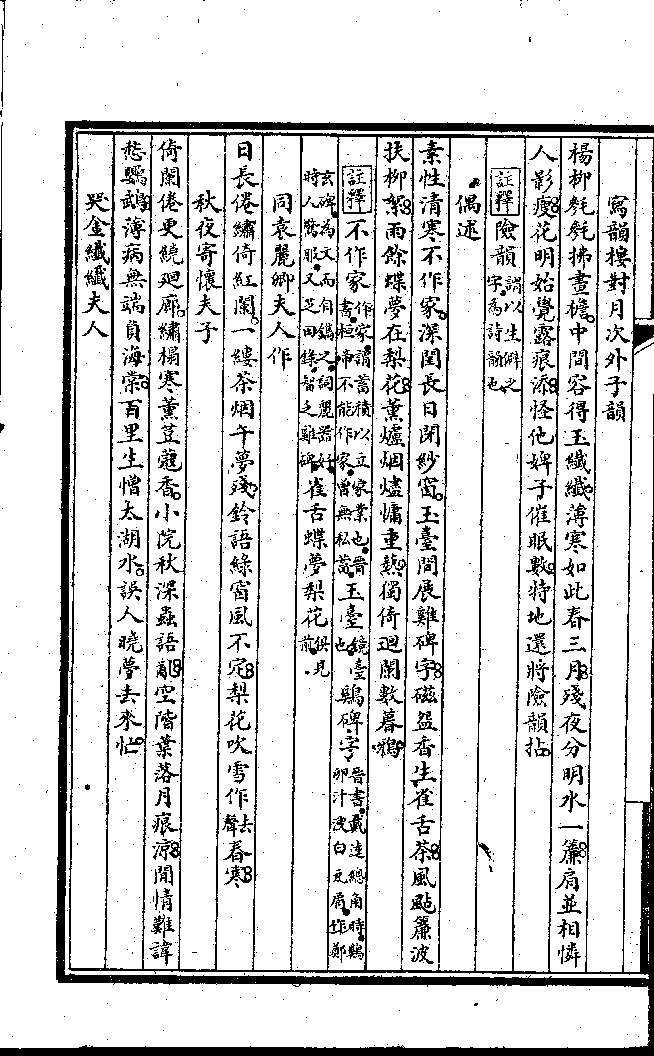 寫韻樓對月次外子韻
楊柳毿毿拂畫檐中間容得玉纖纖薄寒如此春三月殘夜分明水一簾肩並相憐
人影瘦花明始覺露痕添怪他婢子催眠數特地還將險韻拈
註釋 險韻謂以生僻之字為詩韻也
偶述
素性清寒不作家深閨長日閉紗窗玉臺間展雞碑字磁盌香生雀舌茶風颭簾波
扶柳絮雨餘蝶夢在梨花薰爐烟燼慵重熱獨倚迴闌數暮鴉
註釋 不作家作家謂蓄積以立家業也晉書桓帝不能作家曾無私蓄玉臺鏡臺也鷄碑字晉書戴逵總角時鷄卵汁溲白瓦屑作鄭
玄碑為文而自鐫之詞麗器妙時人驚服又芝田錄智之雞碑雀舌蝶夢梨花俱見前
同袁麗卿夫人作
日長倦繡倚紅闌一縷茶烟午夢殘鈴語綠窗風不定梨花吹雪作去聲春寒
秋夜寄懷夫子
倚闌倦更繞迴廊繡榻寒薰荳蔻香小院秋深蟲語亂空階葉落月痕涼閒情難諱
愁鸚鵡薄病無端負海棠百里生憎太湖水誤人曉夢去來忙
哭金纖纖夫人